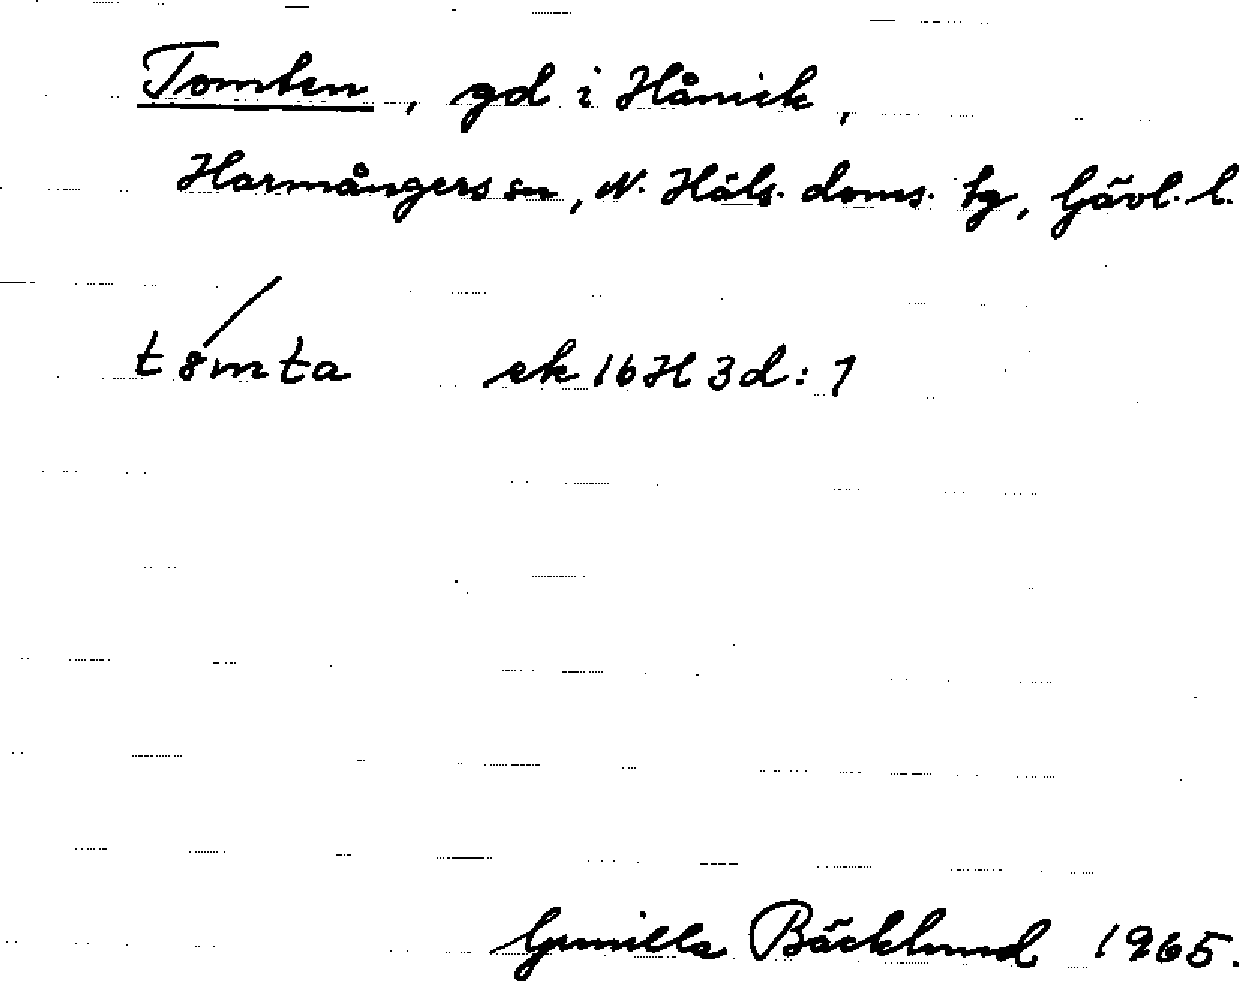 Tomten, gd i Hånick,
Harmångers sn, N. Häls. doms. tg, Gävl. l.
tȣmta ek 16H 3d:1
Gunilla Bäcklund 1965.